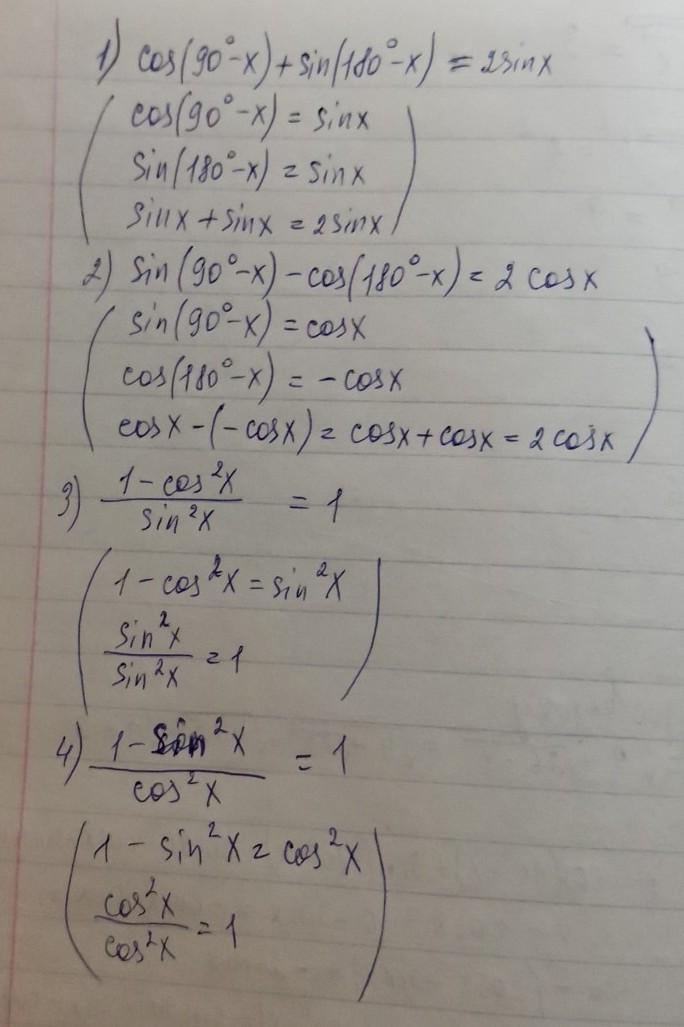 1) cos(90°-x)+sin(180°-x) = 2sinx
cos(90°-x) = sinx
sin(180°-x) = sinx
sinx + sinx = 2sinx
2) sin(90°-x)-cos(180°-x) = 2 cosx
sin(90°-x) = cosx
cos(180°-x) = -cosx
cosx -(-cosx) = cosx+cosx = 2 cosx
3) 1-cos²x / sin²x = 1
1-cos²x = sin²x
sin²x / sin²x = 1
4) 1-sin²x / cos²x = 1
1 - sin²x = cos²x
cos²x / cos²x = 1